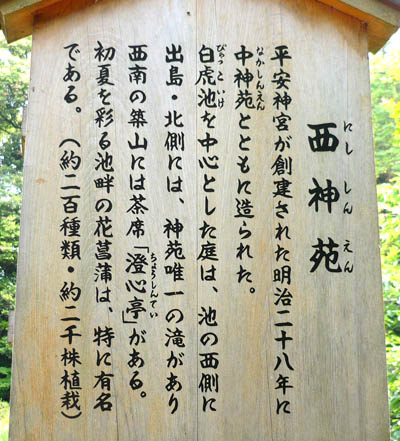 西神苑
にししんえん
平安神宮が創建された明治二十八年に
中神苑とともに造られた。
なかしんえん
白虎池を中心とした庭は、池の西側に
びゃっこいけ
出島・北側には、神苑唯一の滝があり
西南の築山には茶席「澄心亭」がある。
ちょうしんてい
初夏を彩る池畔の花菖蒲は、特に有名
である。（約二百種類・約二千株植栽）